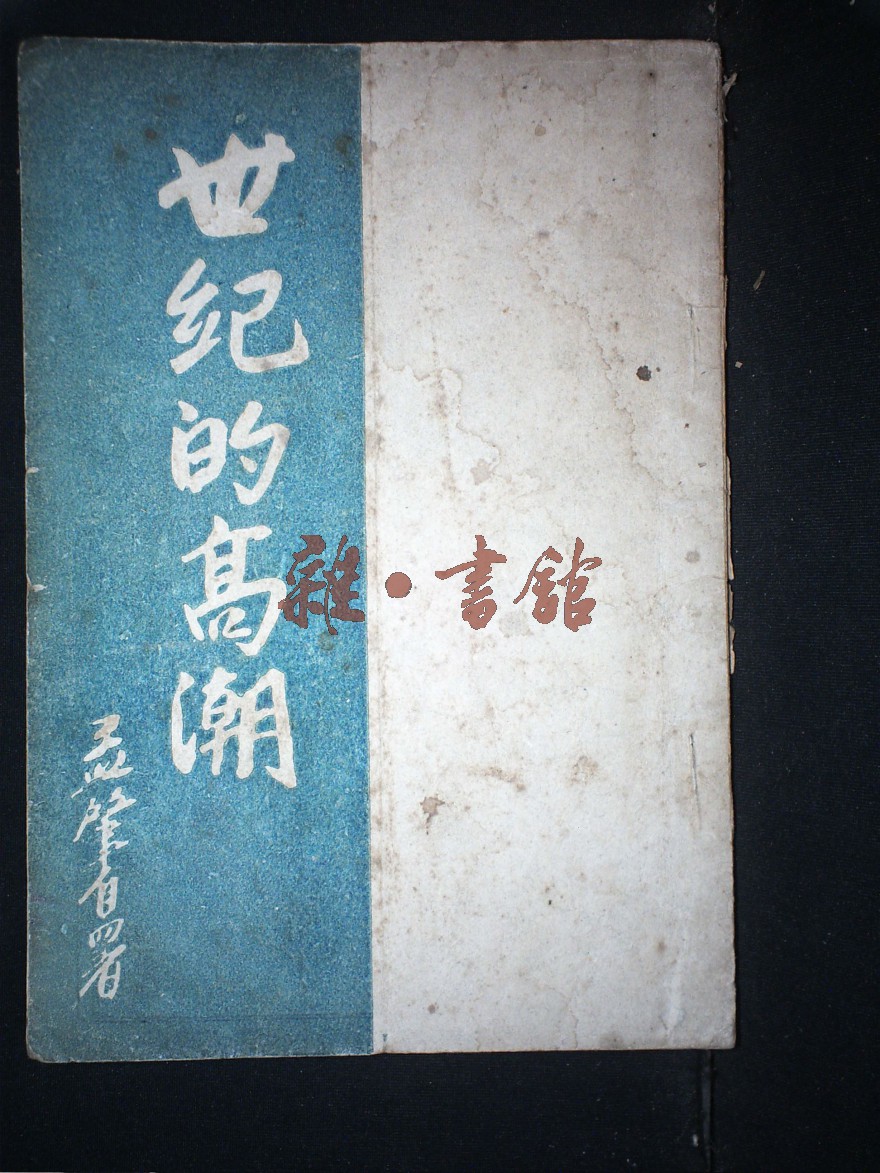 世紀的高潮
孟肇自署
雜·書館